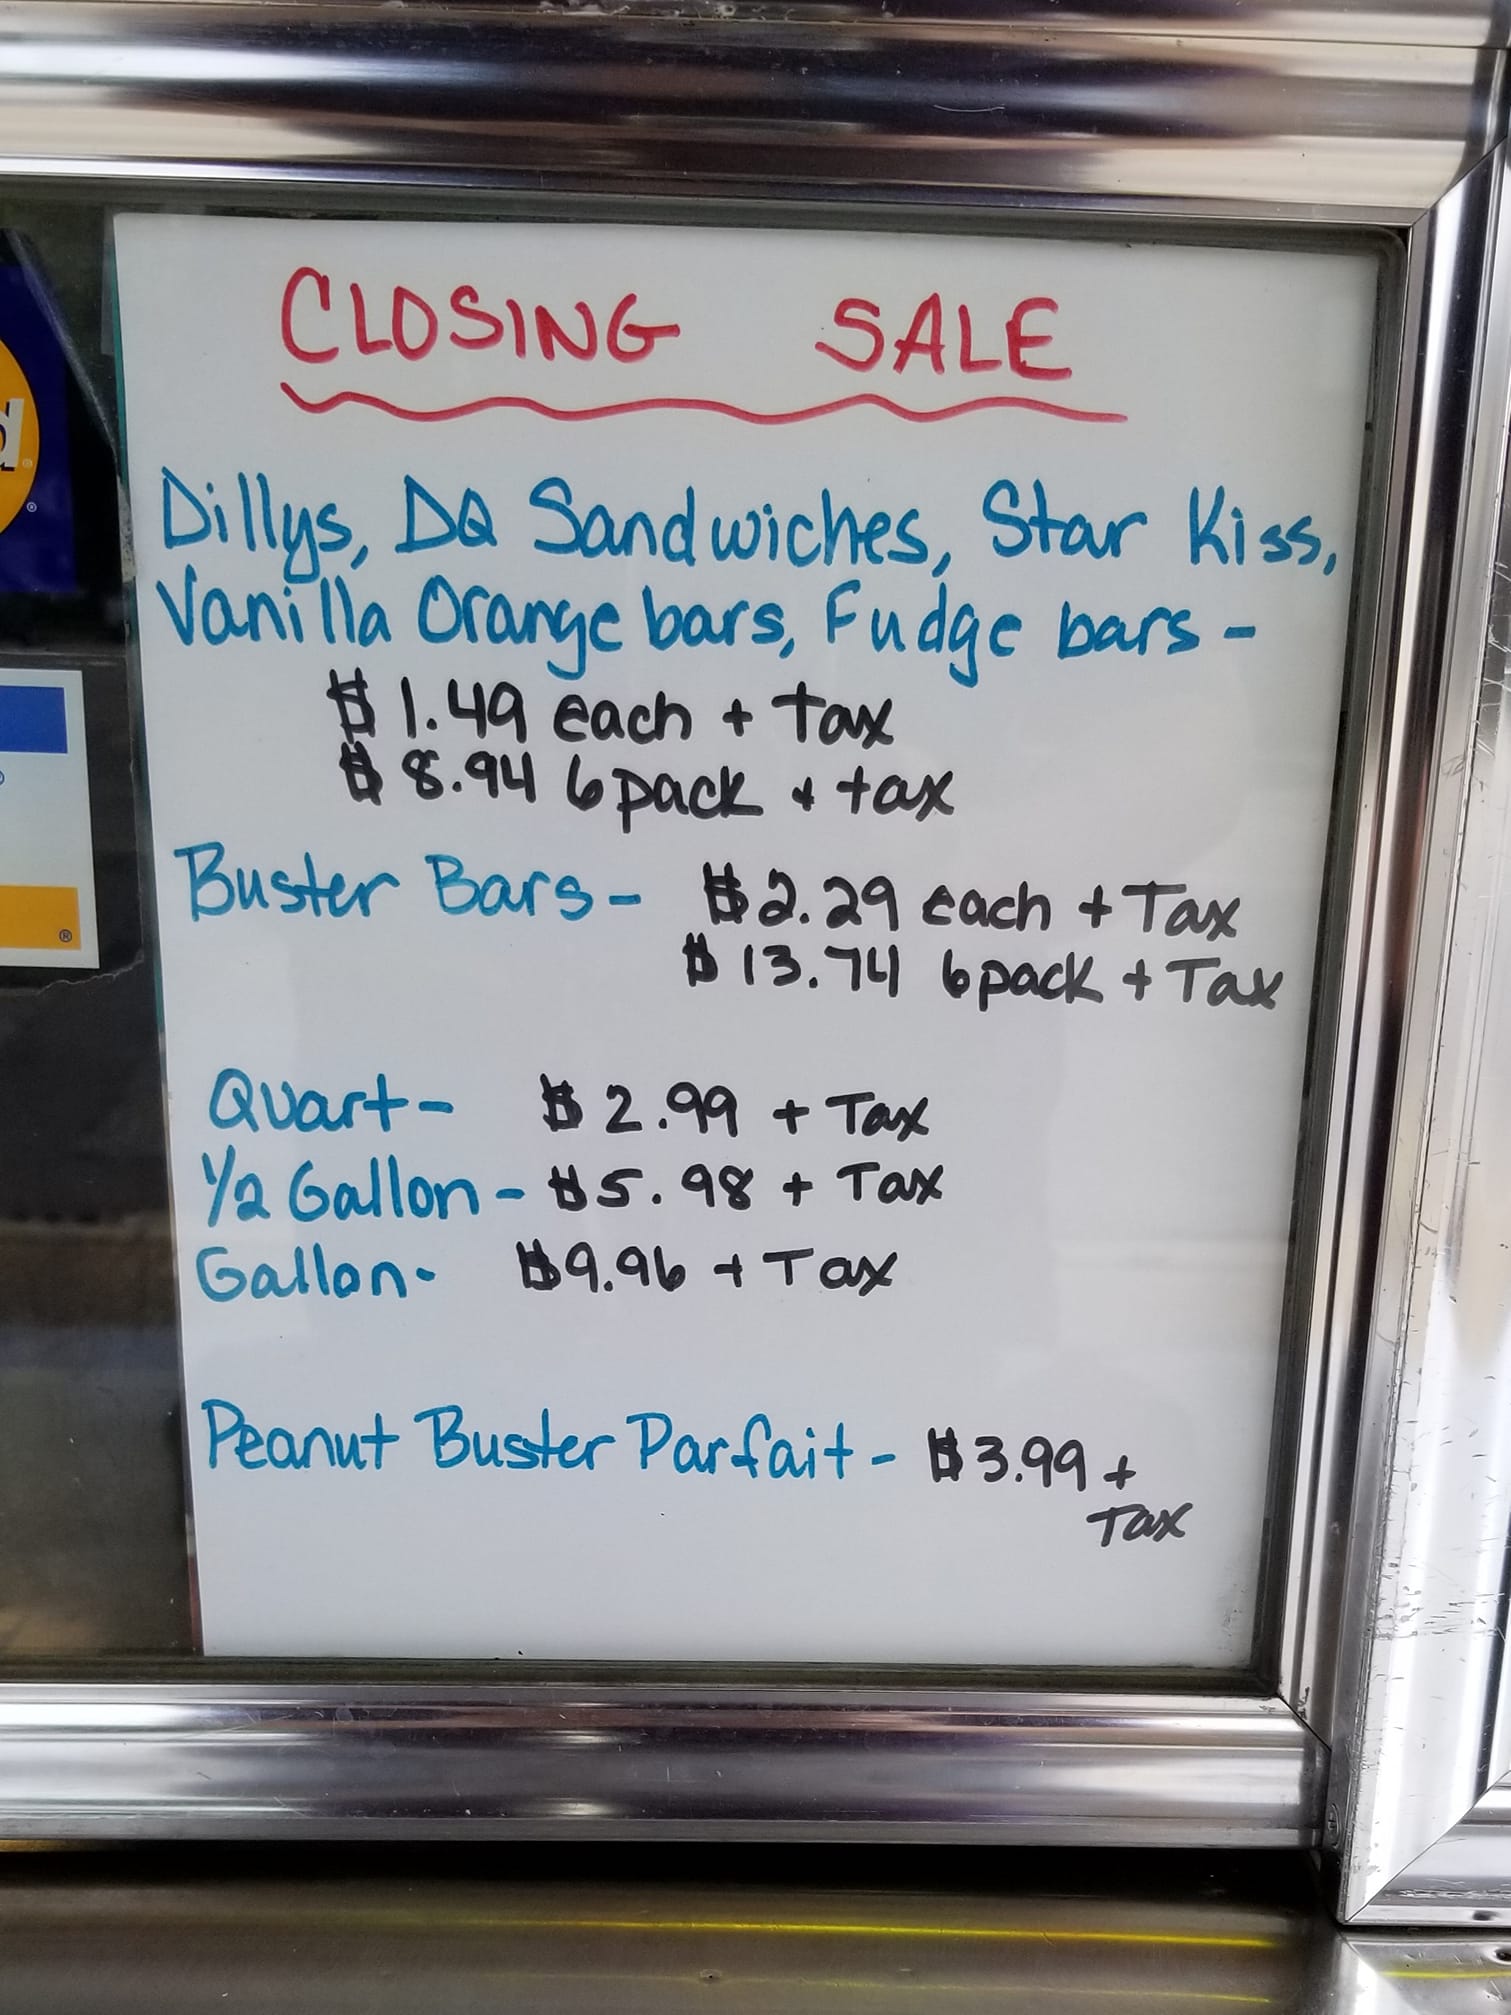 CLOSING SALE
Dillys, DQ Sandwiches, Star Kiss,
Vanilla Orange bars, Fudge bars -
$1.49 each + Tax
$8.94 6 pack + tax
Buster Bars - $2.29 each + Tax
$13.74 6 pack + Tax
Quart - $2.99 + Tax
1/2 Gallon - $5.98 + Tax
Gallon - $9.96 + Tax
Peanut Buster Parfait - $3.99 +
Tax